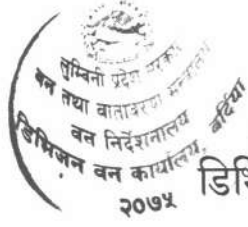 लुम्बिनी प्रदेश सरकार
वन तथा वातावरण मन्त्रालय
वन निर्देशनालय
डिभिजन वन कार्यालय, बर्दिया
२०७५
डिभि